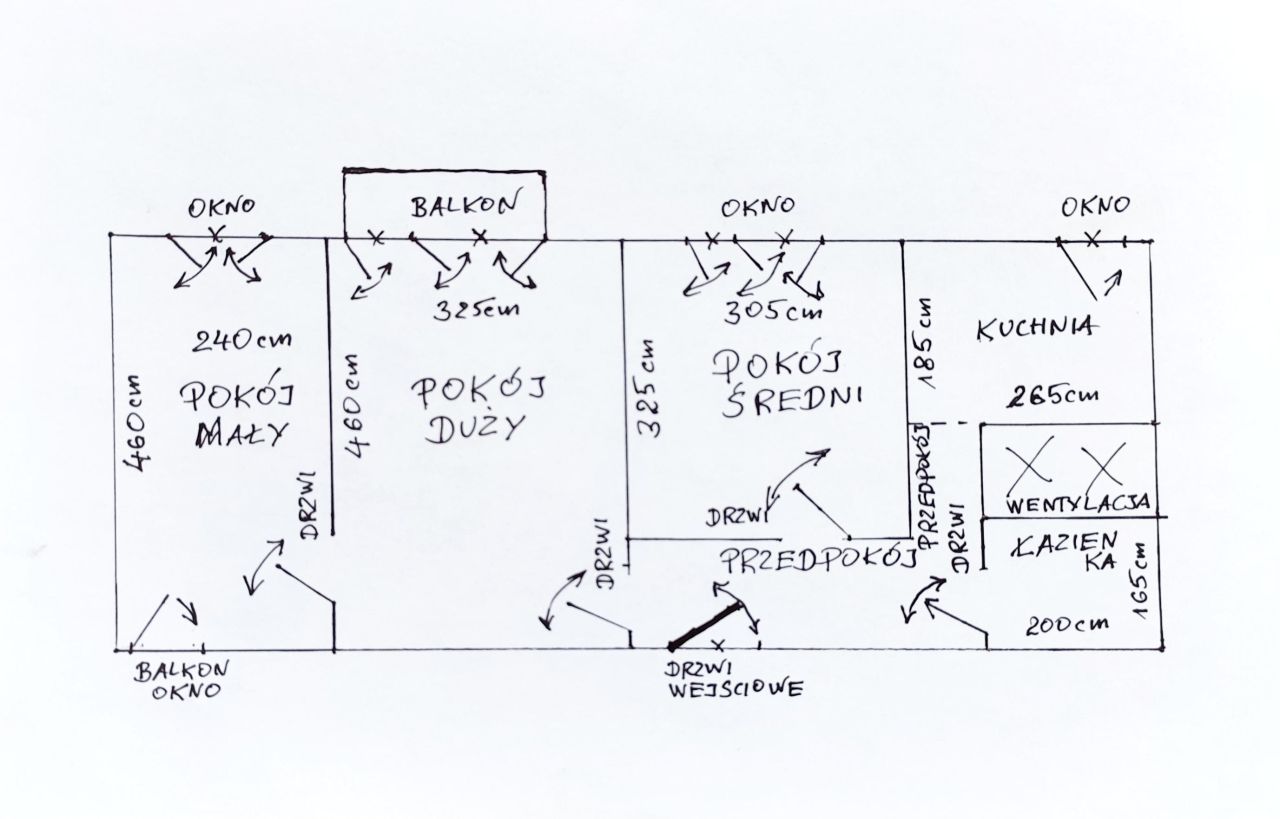 OKNO
BALKON
OKNO
OKNO
240cm
POKÓJ
MAŁY
460cm
DRZWI
BALKON
OKNO
325cm
POKÓJ
DUŻY
460cm
DRZWI
305cm
POKÓJ
ŚREDNI
325cm
DRZWI
PRZEDPOKÓJ
DRZWI
WEJŚCIOWE
185cm
KUCHNIA
265cm
PRZEDPOKÓJ
DRZWI
WENTYLACJA
ŁAZIEN
KA
165cm
200cm